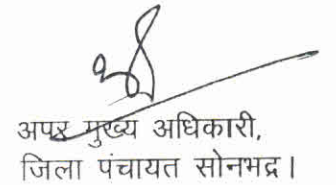 अपर मुख्य अधिकारी,
जिला पंचायत सोनभद्र।